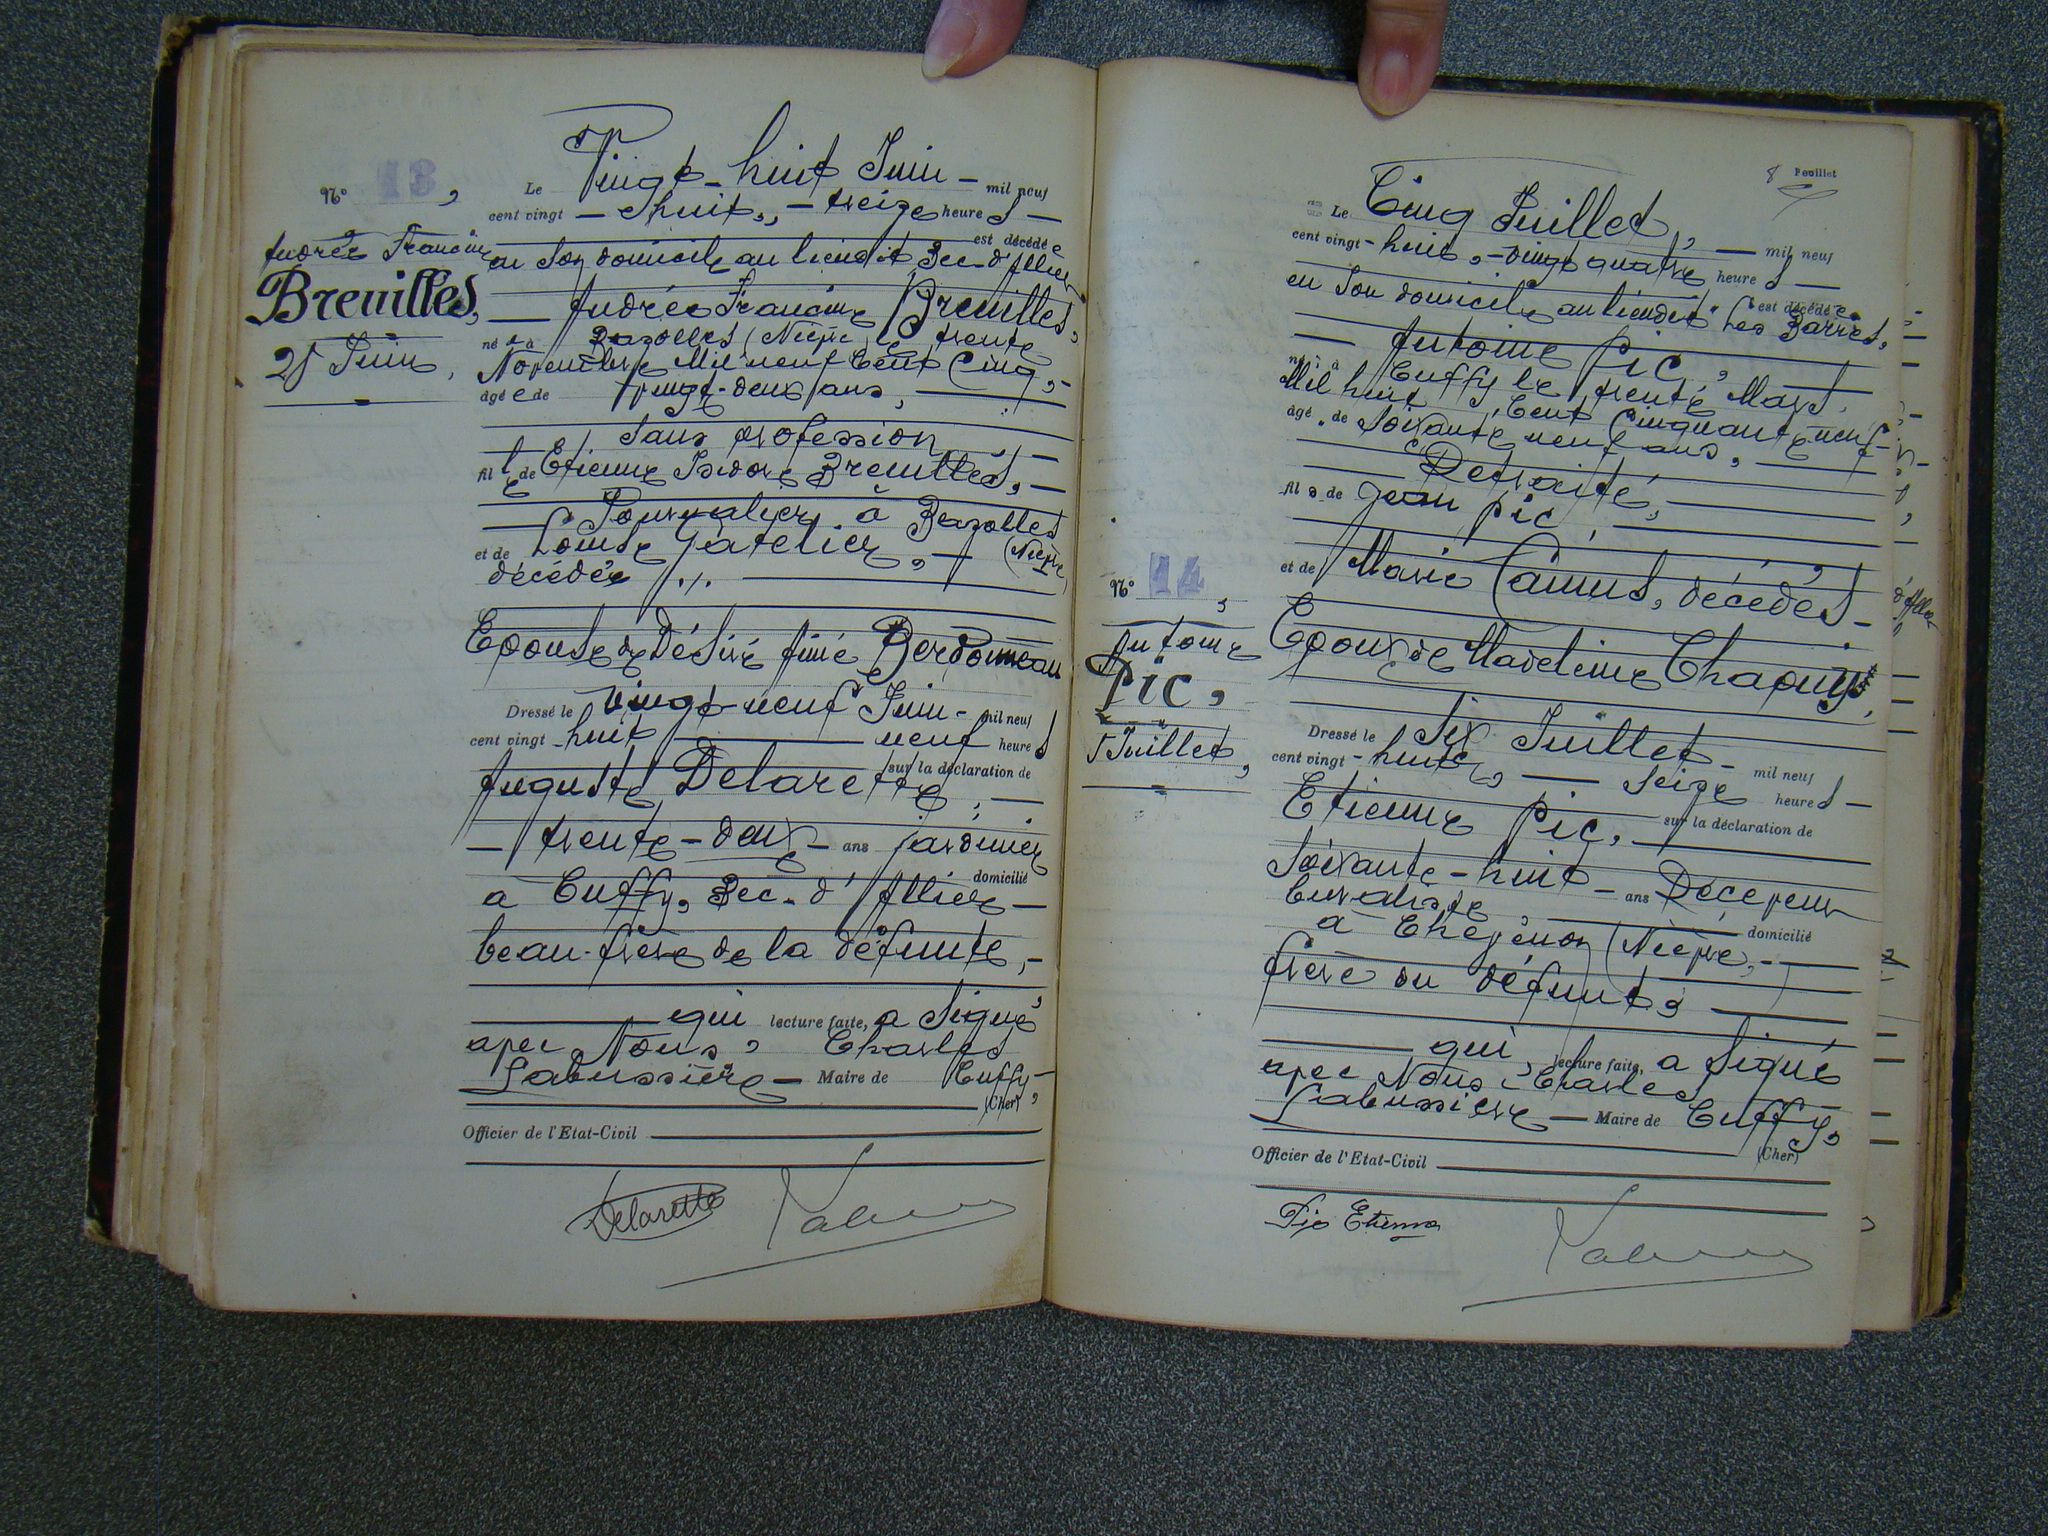 N° 13,
Andrée Francine
Breuilles,
28 Juin,
Le Vingt-huit Juin - mil neuf
cent vingt - huit, - treize heures -
est décédée
en son domicile au lieudit Bec-d'Allier
- Andrée Francine Breuilles,
née à Bazolles (Nièvre) le trente
Novembre Mil neuf Cent Cinq, -
âgée de Vingt-deux ans,
Sans profession,
fille de Etienne Isidore Breuilles, -
Journalier à Bazolles
(Nièvre)
et de Louise Gatelier, -
décédée
Epouse de Désiré Aimé Berdonneau
Dressé le vingt-neuf Juin - mil neuf
cent vingt - huit neuf heures
sur la déclaration de
Auguste Delarette, -
- trente-deux - ans jardinier
domicilié
à Cuffy, Bec-d'Allier -
beau-frère de la défunte, -
qui lecture faite, a signé
avec Nous, Charles
Labussière - Maire de Cuffy,
(Cher)
Officier de l'Etat-Civil
Delarette
8 Feuillet
Le Cinq Juillet, - mil neuf
cent vingt - huit, - vingt quatre heures -
est décédé
en son domicile au lieudit "Les Barres,
Antoine Pic,
né à Cuffy le trente Mars
Mil huit Cent Cinquante neuf -
âgé de soixante neuf ans,
Retraité,
fils de Jean Pic,
et de Marie Camus, décédés -
N° 14,
Antoine
Pic,
5 Juillet,
Epoux de Madeleine Chapuy
Dressé le Six Juillet - mil neuf
cent vingt - huit, - seize heures -
sur la déclaration de
Etienne Pic,
soixante-huit - ans Receveur
buraliste,
domicilié
à Chevenon (Nièvre, -
frère du défunt,
qui, lecture faite, a signé
avec Nous, Charles
Labussière - Maire de Cuffy,
(Cher)
Officier de l'Etat-Civil
Pic Etienne